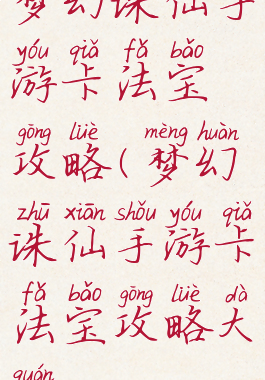 梦幻诛仙手
yóu qiǎ fǎ bǎo
游卡法宝
gōng lüè mèng huàn
攻略(梦幻
zhū xiān shǒu yóu qiǎ
诛仙手游卡
fǎ bǎo gōng lüè dà
法宝攻略大
quán